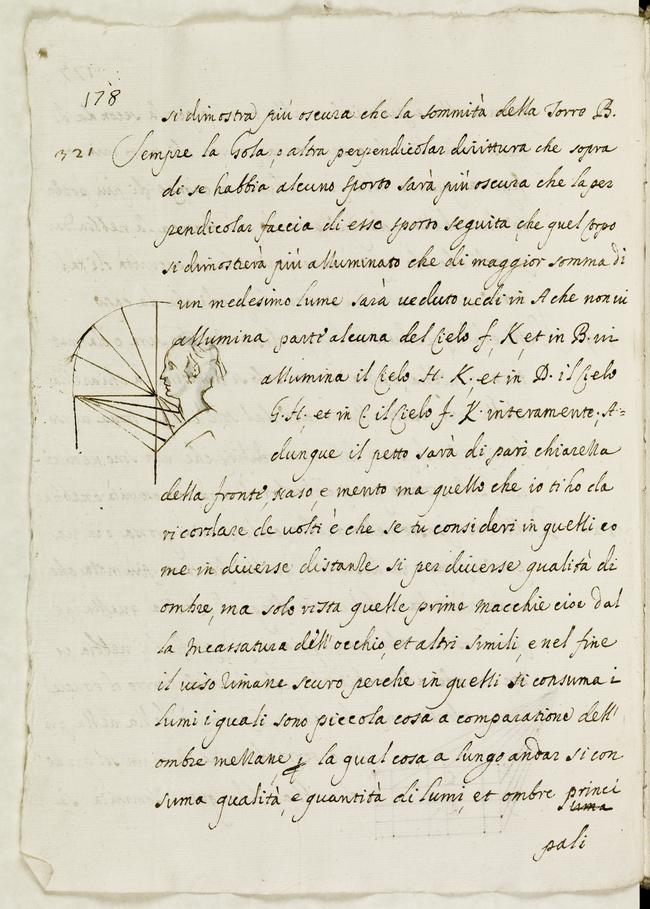 178
si dimostra più oscura che la sommità della Torre B.
321 Sempre la Gola, o altra perpendicolar dirittura che sopra
di se habbia alcuno sporto sarà più oscura che la per
pendicolar faccia di esso sporto seguita, che quel Corpo
si dimostrerà più alluminato che di maggior somma di
un medesimo lume sarà veduto vedi in A che non vi
allumina parte alcuna del Cielo f. K, et in B. vi
allumina il Cielo H. K; et in D. il Cielo
G. H; et in C il Cielo f. K. interamente, A=
dunque il petto sarà di pari chiarezza
della fronte, naso, e mento ma quello che io ti ho da
ricordare de volti è che se tu consideri in quelli co
me in diverse distanze si per diverse qualità di
ombre, ma solo resta quelle prime macchie cioè dal
la Incassatura dell'occhio, et altri simili, e nel fine
il viso Rimane scuro perche in quelli si consuma i
lumi i quali sono piccola cosa a comparatione dell'
ombre mezzane, la qual cosa a lungo andar si con
suma qualità, e quantità di lumi, et ombre princi
pali